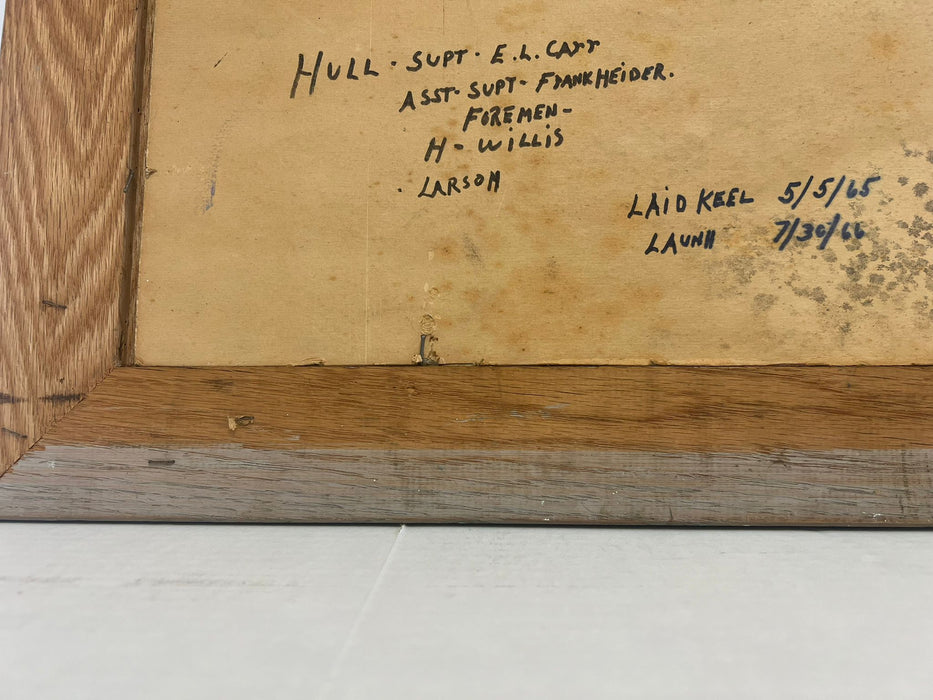 HULL · SUPT · E.L. CARR
ASST- SUPT- FRANK HEIDER.
FOREMEN-
H - WILLIS
· LARSON
LAID KEEL 5/5/65
LAUNH 7/30/66